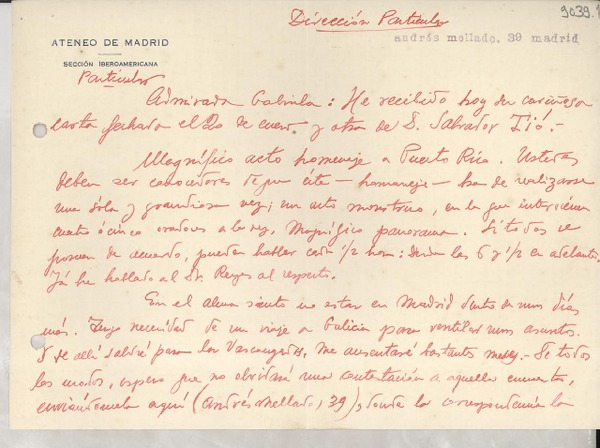 Dirección Particular
9039.1
andrés mellado, 39 madrid
ATENEO DE MADRID
SECCIÓN IBEROAMERICANA
Particular
Admirada Gabriela: He recibido hoy su cariñosa
carta fechada el 20 de enero y otra de S. Salvador Tió.-
Magnífico acto homenaje a Puerto Rico. Ustedes
deben ser conocedores de que éste - homenaje - ha de realizarse
una sola y grandiosa vez; un acto monstruo, en la que intervienen
cuatro ó cinco oradores a la vez. Magnífico panorama. Si todos se
ponen de acuerdo, pueden hablar cada 1/2 hora: desde las 6 y 1/2 en adelante.
Ya he hablado al Sr. Reyes al respecto.
En el alma siento no estar en Madrid dentro de unos días
más. Tengo necesidad de un viaje a Galicia para ventilar unos asuntos.
y de allí saldré para las Vascongadas. Me ausentaré bastantes meses.- De todos
los modos, espero que no olvidará una contestación a aquella encuesta,
enviándomela aquí (Andrés Mellado, 39), donde la correspondencia la